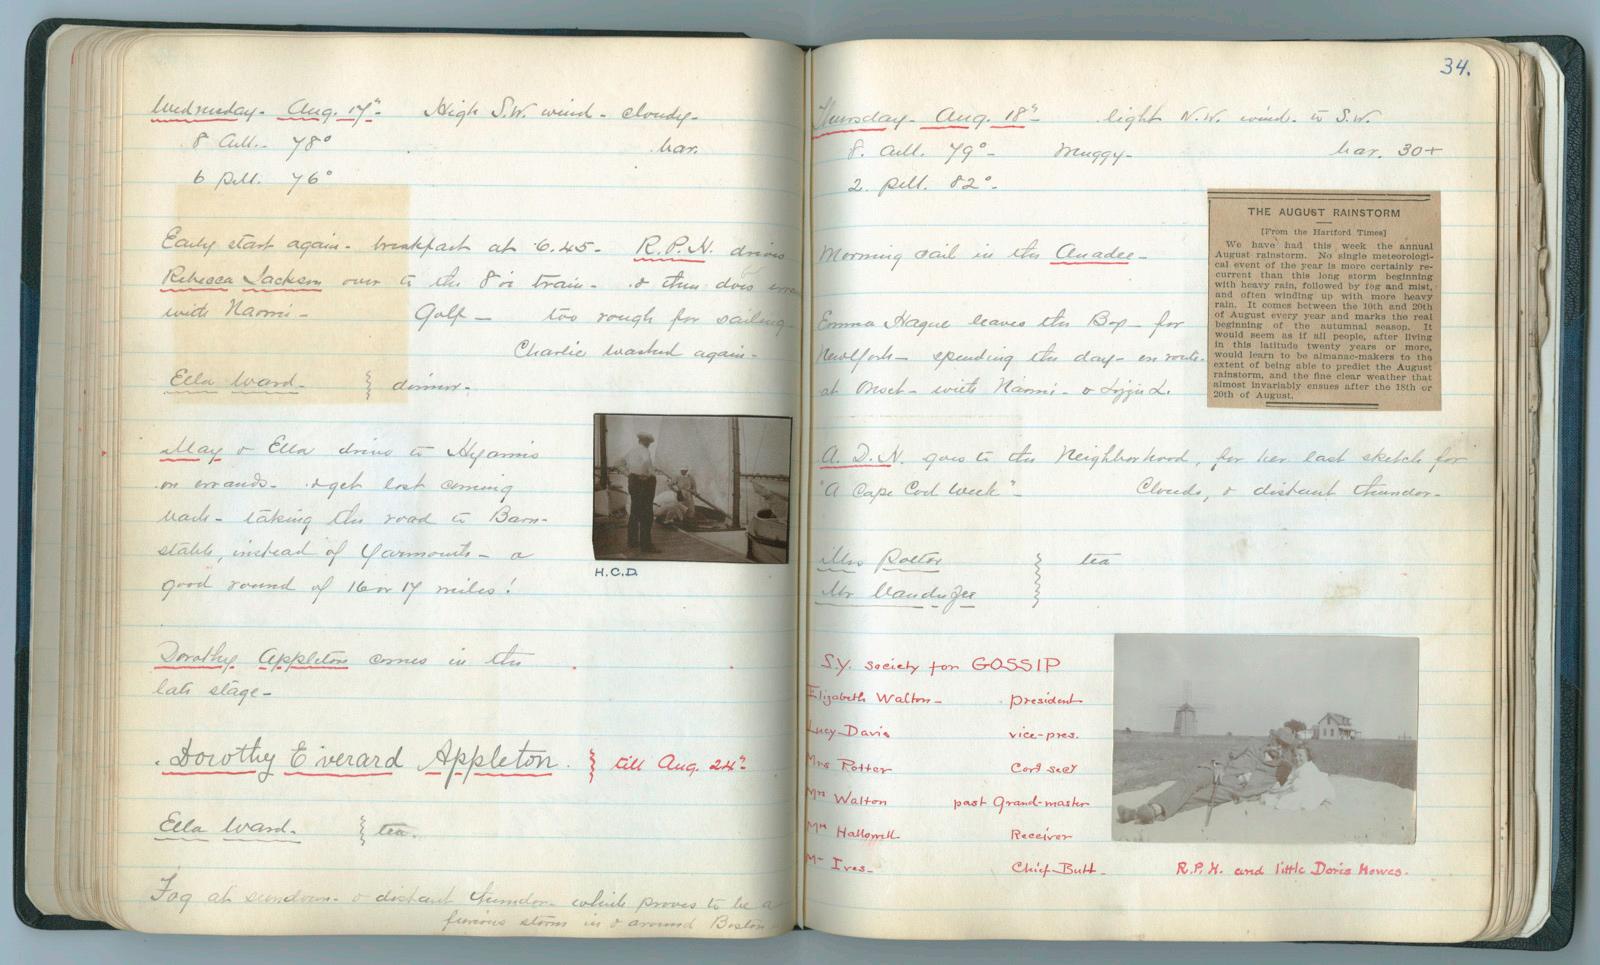 Wednesday. Aug. 17th. High S.W. wind. cloudy.
8 A.M. 78° bar.
6 P.M. 76°
Early start again. breakfast at 6.45. R.P.H. drives
Rebecca Jackson over to the 8 train. & then does
with Naomi. Golf — too rough for sailing
Charlie washed again.
Ella Ward. } dinner.
May & Ella drive to Hyannis
on errands. & get lost coming
back. taking the road to Barn-
stable, instead of Yarmouth — a
good round of 16 or 17 miles!
H.C.D.
Dorothy Appleton comes in the
late stage.
Dorothy Everard Appleton. } till Aug. 24th
Ella Ward. } tea.
Fog at sundown. & distant thunder. which proves to be a
furious storm in & around Boston
34.
Thursday. Aug. 18th light N.W. wind. to S.W.
8. A.M. 79°. Muggy. bar. 30+
2. P.M. 82°.
Morning sail in the
Emma Hague leaves the Box — for
New York — spending the day — en route.
at Onset — with Naomi. & Lizzie L.
A.D.H. goes to the Neighborhood, for her last sketch for
"A Cape Cod Week". Clouds, & distant thunder.
Mrs Potter } tea
Mr
THE AUGUST RAINSTORM
[From the Hartford Times]
We have had this week the annual
August rainstorm. No single meteorologi-
cal event of the year is more certainly re-
current than this long storm beginning
with heavy rain, followed by fog and mist,
and often winding up with more heavy
rain. It comes between the 10th and 20th
of August every year and marks the real
beginning of the autumnal season. It
would seem as if all people, after living
in this latitude twenty years or more,
would learn to be almanac-makers to the
extent of being able to predict the August
rainstorm, and the fine clear weather that
almost invariably ensues after the 18th or
20th of August.
S.Y. society for GOSSIP
Elizabeth Walton — president
Lucy Davis vice-pres.
Mrs Potter Cor'g sec'y
Mrs Walton past Grand-master
Mrs Hallowell Receiver
Mr Ives. Chief-Butt.
R.P.H. and little Doris Howes.